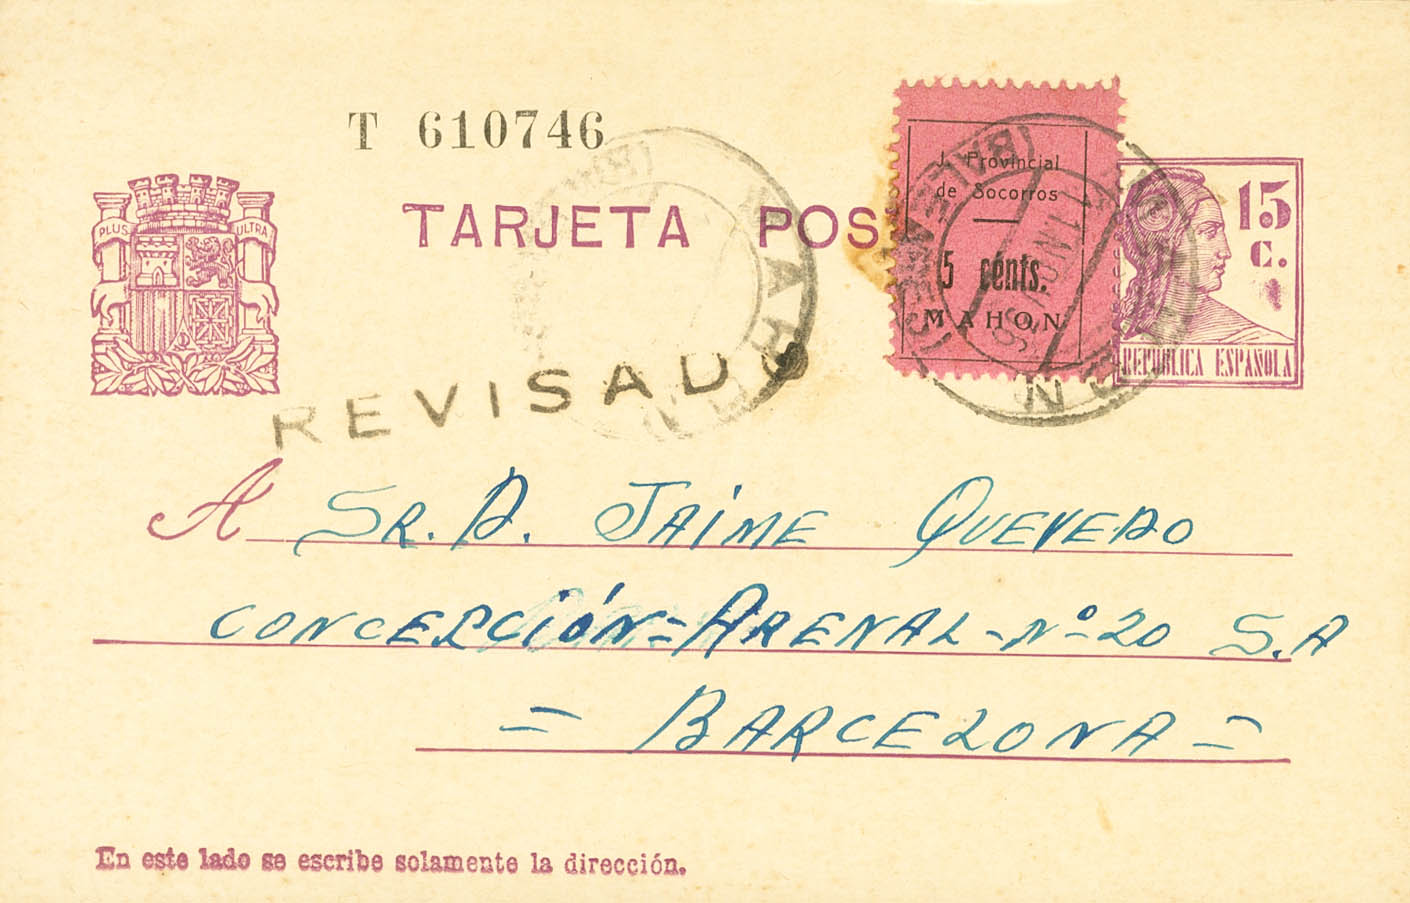 T 610746
PLUS ULTRA
TARJETA POS
J. Provincial
de Socorros
5 cénts.
MAHON
15
c.
REPUBLICA ESPAÑOLA
MAHON
(BALEARES)
MAHON
REVISADO
A SR. D. JAIME QUEVEDO
CONCEPCIÓN=ARENAL-Nº-20 S.A
= BARCELONA =
En este lado se escribe solamente la dirección.